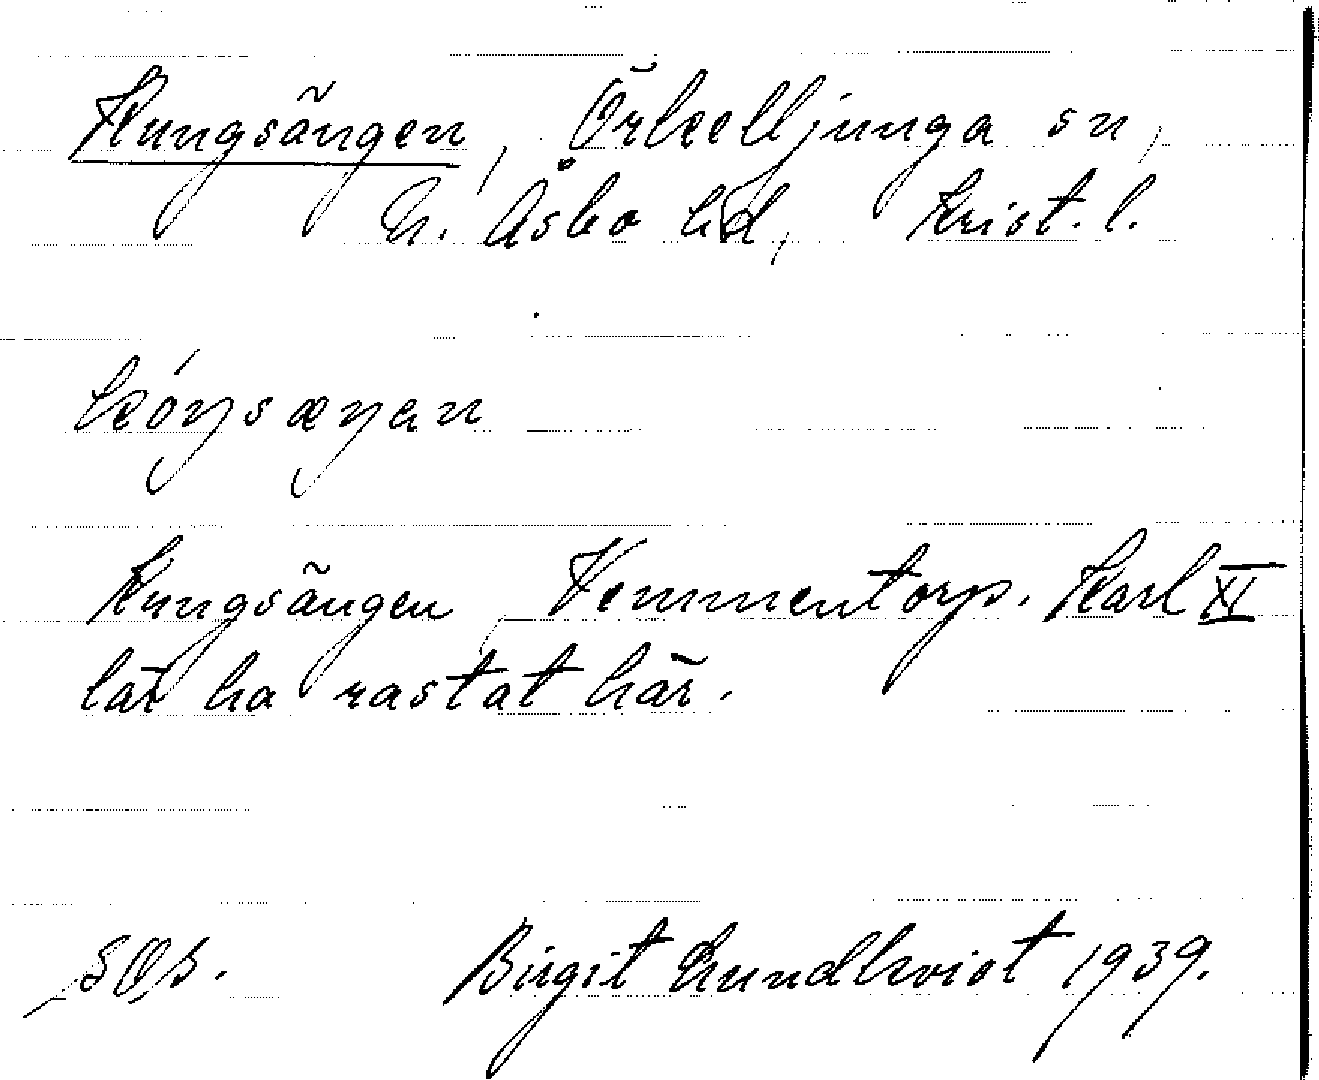 Kungsängen, Örkelljunga sn,
N. Åsbo hd, Krist. l.
kóŋsæŋan
Kungsängen, Vemmentorp. Karl XI
lär ha rastat här.
Birgit Lundkvist 1939.